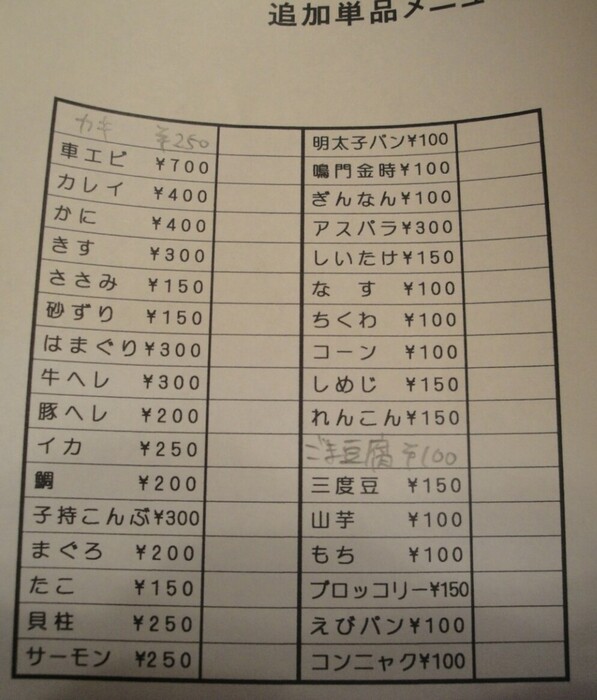 追加単品メニュー
カキ ¥250
車エビ ¥700
カレイ ¥400
かに ¥400
きす ¥300
ささみ ¥150
砂ずり ¥150
はまぐり¥300
牛ヘレ ¥300
豚ヘレ ¥200
イカ ¥250
鯛 ¥200
子持こんぶ¥300
まぐろ ¥200
たこ ¥150
貝柱 ¥250
サーモン ¥250
明太子パン¥100
鳴門金時¥100
ぎんなん¥100
アスパラ¥300
しいたけ¥150
なす ¥100
ちくわ ¥100
コーン ¥100
しめじ ¥150
れんこん¥150
ごま豆腐 ¥100
三度豆 ¥150
山芋 ¥100
もち ¥100
ブロッコリー¥150
えびパン¥100
コンニャク¥100